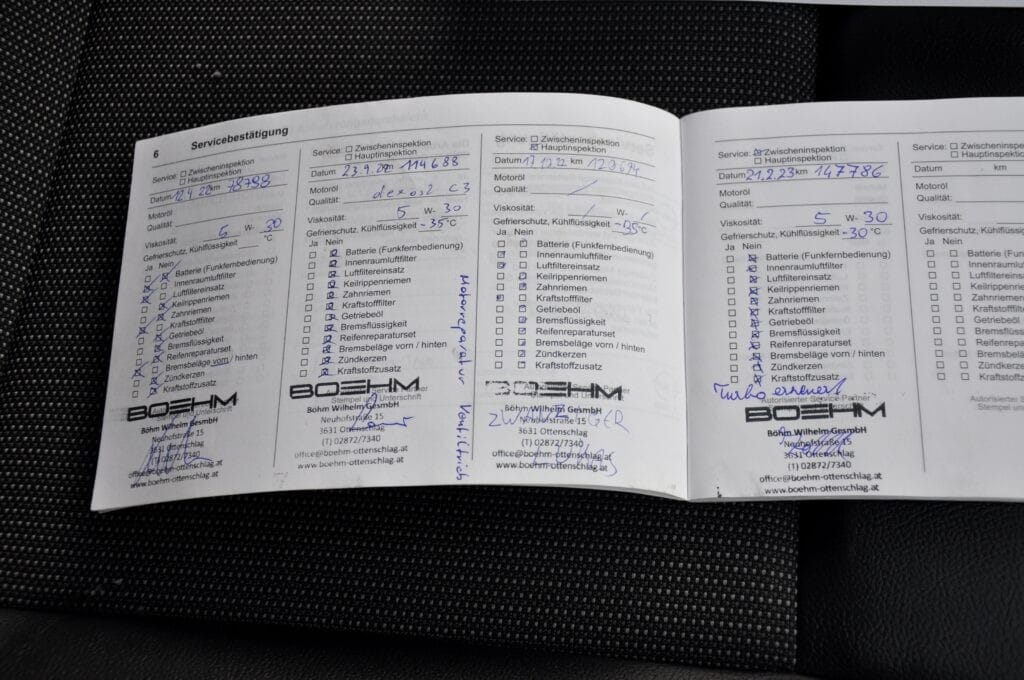 6 Servicebestätigung
Service: Zwischeninspektion
Hauptinspektion
Datum 12.4.22 km 78798
Motoröl
Qualität:
Viskosität: 5 W- 30
Gefrierschutz, Kühlflüssigkeit °C
Ja Nein
Batterie (Funkfernbedienung)
Innenraumluftfilter
Luftfiltereinsatz
Keilrippenriemen
Zahnriemen
Kraftstofffilter
Getriebeöl
Bremsflüssigkeit
Reifenreparaturset
Bremsbeläge vorn / hinten
Zündkerzen
Kraftstoffzusatz
BOEHM
Böhm Wilhelm GesmbH
Neuhofstraße 15
3631 Ottenschlag
(T) 02872/7340
office@boehm-ottenschlag.at
www.boehm-ottenschlag.at
Service: Zwischeninspektion
Hauptinspektion
Datum 23.9.22 km 114688
Motoröl
Qualität: dexos2 C3
Viskosität: 5 W- 30
Gefrierschutz, Kühlflüssigkeit -35 °C
Ja Nein
Batterie (Funkfernbedienung)
Innenraumluftfilter
Luftfiltereinsatz
Keilrippenriemen
Zahnriemen
Kraftstofffilter
Getriebeöl
Bremsflüssigkeit
Reifenreparaturset
Bremsbeläge vorn / hinten
Zündkerzen
Kraftstoffzusatz
BOEHM
Stempel und Unterschrift
Böhm Wilhelm GesmbH
Neuhofstraße 15
3631 Ottenschlag
(T) 02872/7340
office@boehm-ottenschlag.at
www.boehm-ottenschlag.at
Motorreparatur
Service: Zwischeninspektion
Hauptinspektion
Datum 17.12.22 km
Motoröl
Qualität:
Viskosität: W-
Gefrierschutz, Kühlflüssigkeit -35 °C
Ja Nein
Batterie (Funkfernbedienung)
Innenraumluftfilter
Luftfiltereinsatz
Keilrippenriemen
Zahnriemen
Kraftstofffilter
Getriebeöl
Bremsflüssigkeit
Reifenreparaturset
Bremsbeläge vorn / hinten
Zündkerzen
Kraftstoffzusatz
BOEHM
Böhm Wilhelm GesmbH
Neuhofstraße 15
3631 Ottenschlag
(T) 02872/7340
office@boehm-ottenschlag.at
www.boehm-ottenschlag.at
Service: Zwischeninspektion
Hauptinspektion
Datum 21.2.23 km 147786
Motoröl
Qualität:
Viskosität: 5 W- 30
Gefrierschutz, Kühlflüssigkeit -30 °C
Ja Nein
Batterie (Funkfernbedienung)
Innenraumluftfilter
Luftfiltereinsatz
Keilrippenriemen
Zahnriemen
Kraftstofffilter
Getriebeöl
Bremsflüssigkeit
Reifenreparaturset
Bremsbeläge vorn / hinten
Zündkerzen
Kraftstoffzusatz
Turbo erneuert
Autorisierter Service Partner
BOEHM
Böhm Wilhelm GesmbH
Neuhofstraße 15
3631 Ottenschlag
(T) 02872/7340
office@boehm-ottenschlag.at
www.boehm-ottenschlag.at
Service: Zwischen
Hauptins
Datum km
Motoröl
Qualität:
Viskosität:
Gefrierschutz, Kühlflüssi
Ja Nein
Batterie (Funk
Innenraumluft
Luftfiltereinsa
Keilrippenrie
Zahnriemen
Kraftstofffilte
Getriebeöl
Bremsflüssi
Reifenrepar
Bremsbeläg
Zündkerzen
Kraftstoffzu
Autorisierter
Stempel un